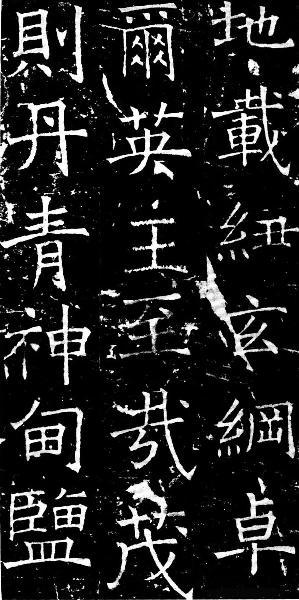 地載紐玄綱卓
爾英主至哉茂
則丹青神甸鹽